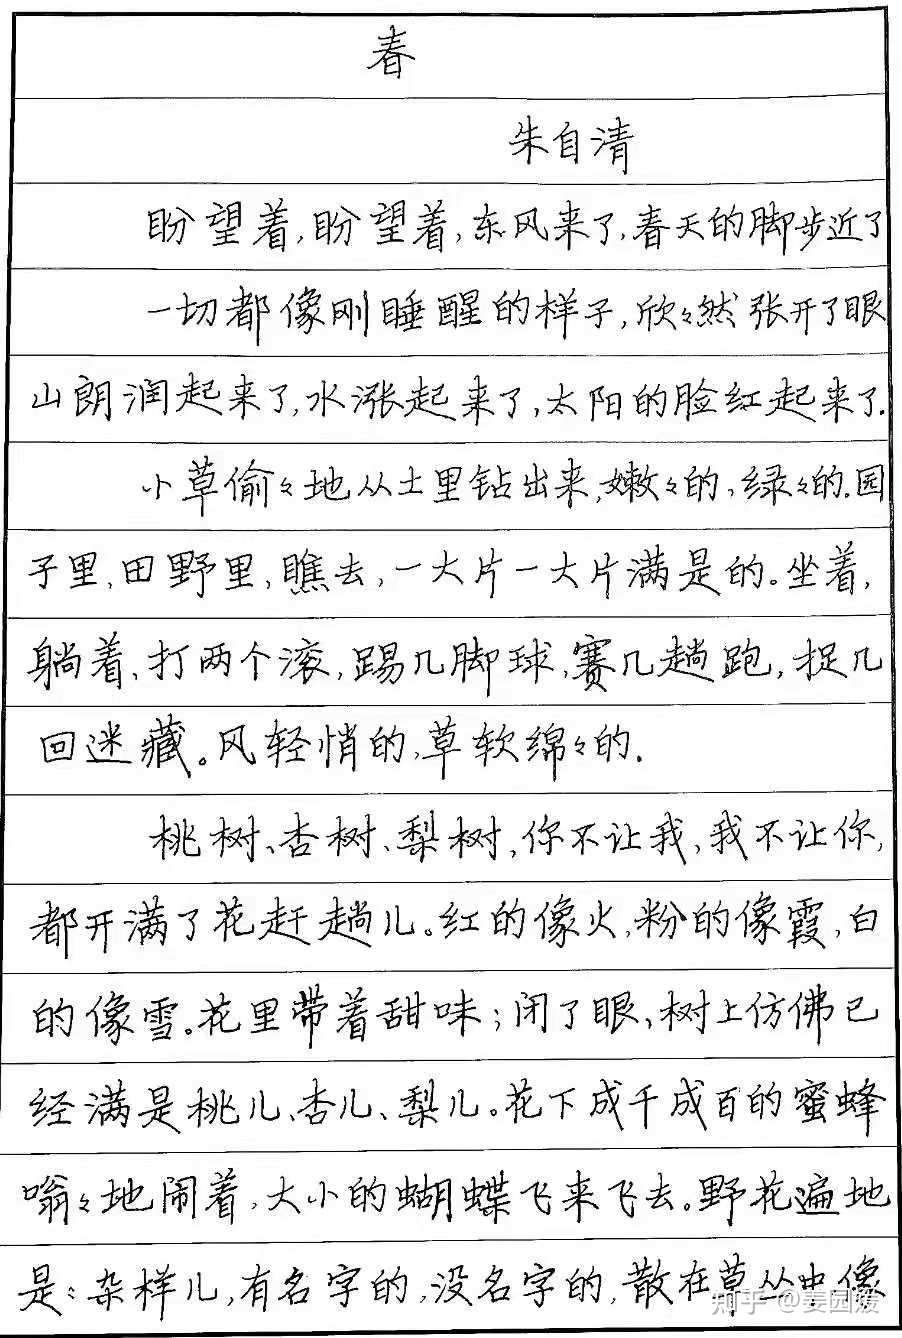 春
朱自清
盼望着,盼望着,东风来了,春天的脚步近了
一切都像刚睡醒的样子,欣々然张开了眼
山朗润起来了,水涨起来了,太阳的脸红起来了.
小草偷々地从土里钻出来,嫩々的,绿々的.园
子里,田野里,瞧去,一大片一大片满是的。坐着,
躺着,打两个滚,踢几脚球,赛几趟跑,捉几
回迷藏。风轻悄的,草软绵々的.
桃树、杏树、梨树,你不让我,我不让你,
都开满了花赶趟儿。红的像火,粉的像霞,白
的像雪。花里带着甜味;闭了眼,树上仿佛已
经满是桃儿、杏儿、梨儿。花下成千成百的蜜蜂
嗡々地闹着,大小的蝴蝶飞来飞去。野花遍地
是:杂样儿,有名字的,没名字的,散在草丛中像
知乎 @姜园媛